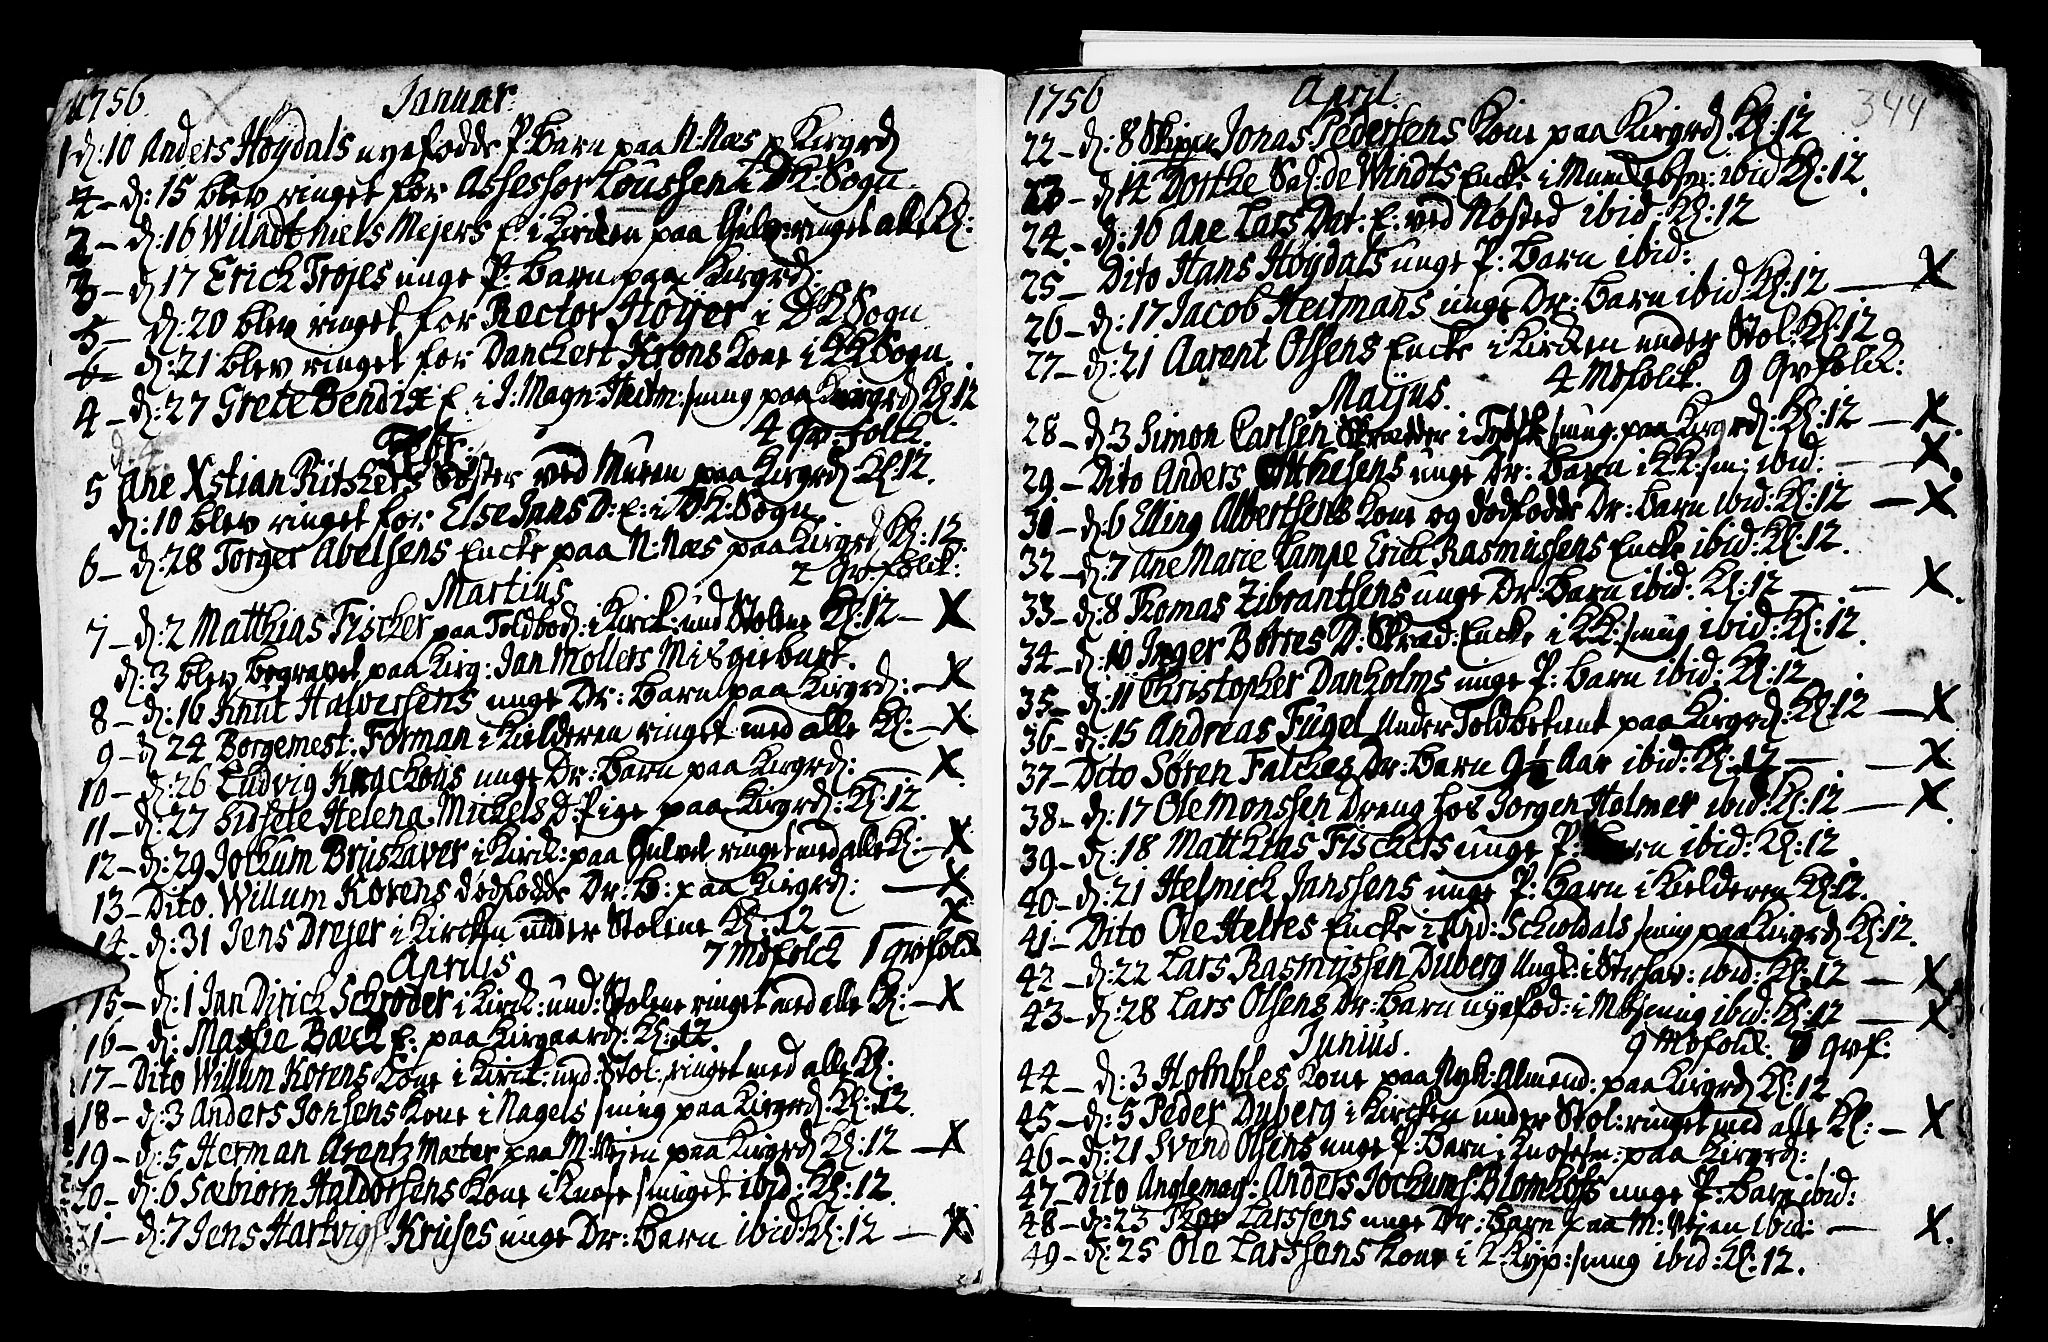 1756. Januar:
1 d: 10 Anders Høydals nyefødde P: Barn paa N: Næs p Kirgrd
4 – d: 15 blev ringet for Assessor Coussen i DK: Sogn.
2 – d: 16 Wiladt Niels Mejers E. i Kircken paa Gulv: ringet alle Kl:
3 – d: 17 Erick Trojels unge P: Barn paa Kirgrd:
5 – d: 20 blev ringet for Rector Høyer i DK Sogn
6 – d: 21 blev ringet for Danckert Krøns Kone i KK Sogn
4 – d: 27 Grete Bendix E. i J: Magn: Heitm: smug paa Kirgrd Kl 12
4 Qv: folk.
Febr:
5 Ane Xstian Ritskers Søster ved Muren paa Kirgrd Kl 12.
d: 10 blev ringet for Else Jans D: E: i DK: Sogn
6 – d: 28 Torger Abelsens Encke paa N: Næs paa Kirgrd Kl: 12
2 Qvfolck:
Martius
7 – d: 2 Matthias Fischer paa Toldbod: i Kirck: und Stolene Kl: 12 – X
d: 3 blev begravet paa Kirg: Jan Mollers Misgieburt.
8 – d: 16 Knut Halvorsens unge Dr: Barn paa Kirgrd: – X
9 – d 24 Borgemest: Forman i Kielderen ringet med alle Kl: – X
10 – d: 26 Ludvig Krackous unge Dr: Barn paa Kirgrd: – X
11 – d: 27 Sidsele Helena Mickels D: Pige paa Kirgrd: Kl: 12
12 – d: 29 Jochum Bruskaver i Kirck: paa Gulvet ringet med alle Kl: – X
13 – Dito. Willum Korens dødfødde Dr: B: paa Kirgrd: – X
14 – d: 31 Jens Drejer i Kircken under Stolene Kl. 12 – X
7 Mdfolck 1 Qvfolck
Aprilis
15 – d: 1 Jan Dirick Schrøder i Kirck: und: Stolene ringet med alle Kl: – X
16 – d: Massie Bæck E: paa Kirgaard: Kl: 12.
17 – Dito Willum Korens Kone i Kirck: und: Stol: ringet med alle Kl:
18 – d: 3 Anders Jonsens Kone i Nagels smug paa Kirgrd: Kl: 12.
19 – d: 5 Herman Arentz Mater paa M: Vejen paa Kirgrd Kl: 12 – X
20 – d: 6 Sæbiørn Haldorsens Kone i Knøse smuget ibid: Kl: 12.
21 – d: 7 Jens Hartvig Kruses unge Dr: Barn ibid: Kl: 12 – X
1756 April. 344
22 – d: 8 Skipper Jonas Pedersens Kone paa Kirgrd. Kl: 12
23 – d 14 Dorthe Sal: de Windts Encke i ibid Kl: 12.
24 – d: 16 Ane Lars Dat: E: ved Nøsted ibid: Kl: 12
25 – Dito Hans Høydals unge P: Barn ibid:
26 – d: 17 Jacob Heitmans unge Dr: Barn ibid Kl: 12 – X
27 – d: 21 Aarent Olsens Encke i Kircken under Stol: Kl: 12
4 Mdfolck. 9 Qvfolck:
Maijus.
28 – d: 3 Simon Carlsen Skrædder i Tydsk smug: paa Kirgrd: Kl: 12 – X
29 – Dito Anders Mthesens unge Dr: Barn i KK: sm: ibid: – X
31 – d: 6 Elling Albertsens Kone og dødfødde Dr: Barn ibid: Kl: 12 – X
32 – d: 7 Ane Marie Lampe Erick Rasmussens Encke ibid: Kl: 12.
33 – d: 8 Thomas Zibrantsens unge Dr: Barn ibid: Kl: 12 – X
34 – d: 10 Inger Børres D: Skræd: Encke i KK: smug ibid: Kl: 12.
35 – d: 11 Christopher Danholms unge P: Barn ibid: Kl: 12
36 – d: 15 Andreas Fugel Under Toldbetient paa Kirgrd: Kl: 12 – X
37 – Dito Søren Falckes Dr: Barn 9½ Aar ibid: Kl: 12 – X
38 – d: 17 Ole Monssen Dreng hos Jørgen Holmer ibid: Kl: 12 – X
39 – d: 18 Matthias Fischers unge P: Barn ibid: Kl: 12
40 – d: 21 Helmick Janssens unge P: Barn i Kielderen Kl: 12.
41 – Dito Ole Heltes Encke i And: Schioldals smug paa Kirgrd Kl: 12.
42 – d: 22 Lars Rasmussen Duberg Ungk: i Strhav: ibid: Kl: 12 – X
43 – d: 28 Lars Olsens Dr: Barn nyefød: i Mksmug ibid: Kl: 12 – X
Junius. 9 Mdfolck. 7 Qvf:
44 – d: 3 Holmbies Kone paa Nyk: Almend: paa Kirgrd Kl: 12
45 – d: 5 Peder Dyberg i Kircken under Stol: ringet med alle Kl: – X
46 – d: 21 Svend Olsens unge P: Barn i Knøsesm: paa Kirgrd:
47 – Dito Anglemag: Anders Jochums: Blomhofs unge P: Barn ibid:
48 – d: 23 Thor Larssens unge Dr: Barn paa M: Vejen ibid: – X.
49 – d: 25 Ole Larssens Kone i K: Kyp: smug ibid: Kl: 12.